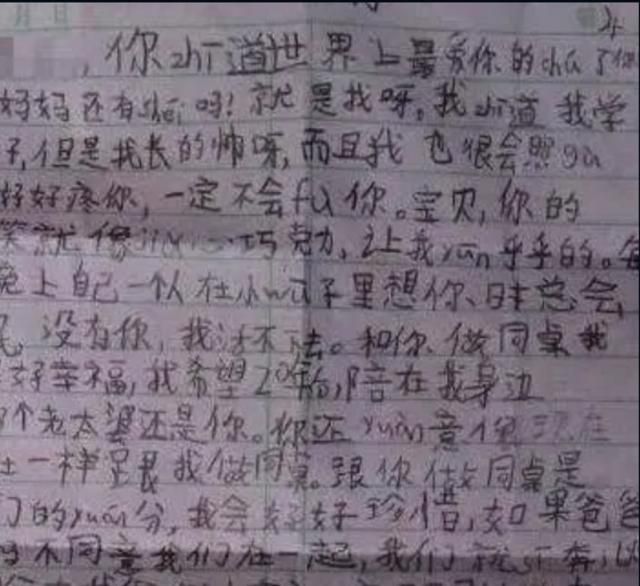 ,你zhī道世界上最爱你的chú了你
妈妈还有shéi吗!就是我呀,我zhī道我学
子,但是我长的帅呀,而且我也很会照gù
好好疼你,一定不会fù你。宝贝,你的
笑就像 巧克力,让我 乎乎的。每
晚上自己一个人在小wū子里想你、时总会
,没有你,我活不下去。和你做同桌我
好幸福,我希望20年后,陪在我身边
那个老太婆还是你。你还yuàn意像现在
一样 跟我做同桌。跟你做同桌是
们的yuán分,我会好好珍惜,如果爸爸
妈不同意我们在一起,我们就 奔,